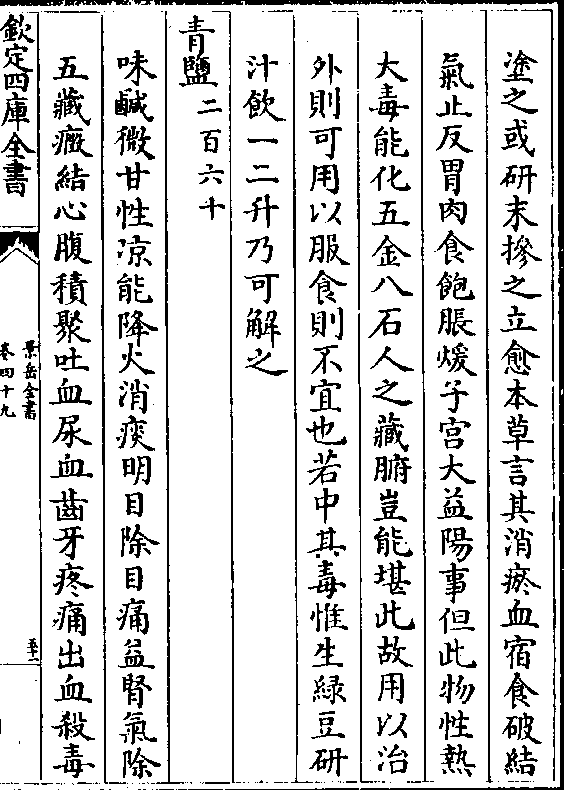 塗之或研末摻之立愈本草言其消瘀血宿食破結
氣止反胃肉食飽脹煖子宫大益陽事但此物性熱
大毒能化五金八石人之藏腑豈能堪此故用以治
外則可用以服食則不宜也若中其毒惟生緑豆研
汁飲一二升乃可解之
青鹽二百六十
味鹹微甘性凉能降火消痰明目除目痛益腎氣除
五藏癥結心腹積聚吐血尿血齒牙疼痛出血殺毒
欽定四庫全書
景岳全書
卷四十九